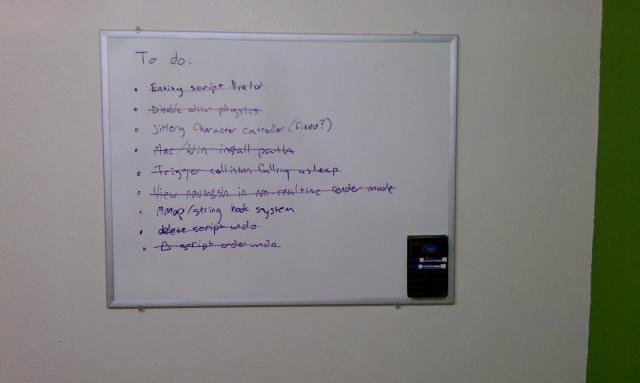 To do.
Entity script
Disable editor physics
Jittery Character controller (fixed?)
Mac/Win install paths
Trigger collisions falling asleep
View navmesh in non-realtime render mode
/string hook system
delete script undo
script order undo